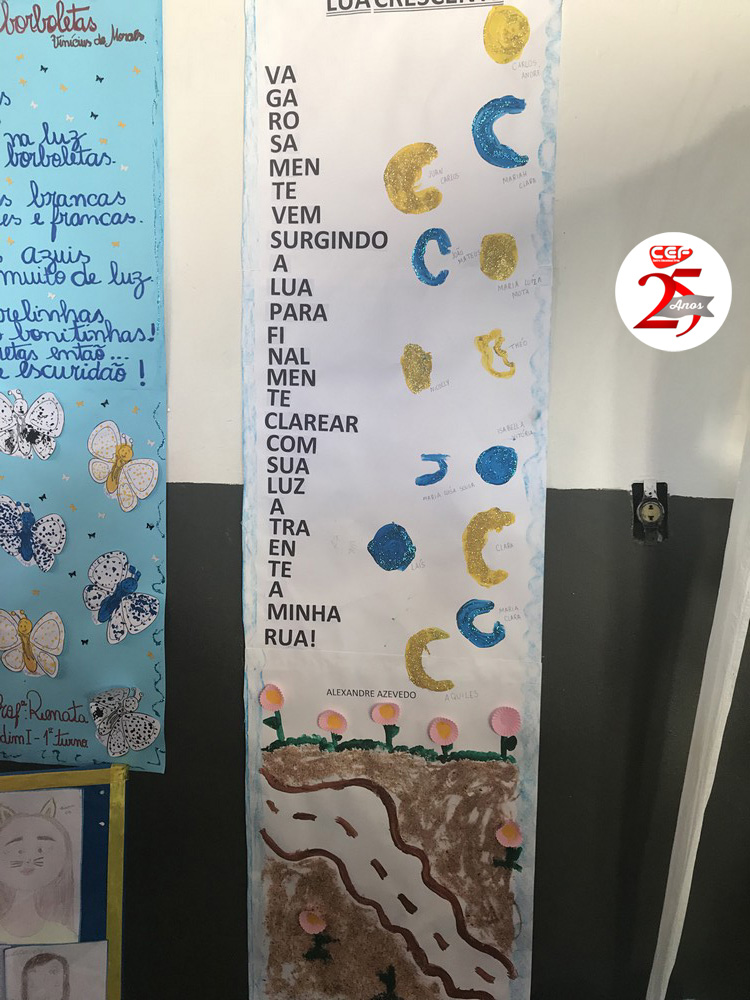 borboletas
Vinícius de Moraes
na luz
borboletas.
brancas
e francas.
azuis
muito de luz.
bonitinhas!
então...
escuridão!
Profª: Renata
1º turno
LUA CRESCENTE
VA
GA
RO
SA
MEN
TE
VEM
SURGINDO
A
LUA
PARA
FI
NAL
MEN
TE
CLAREAR
COM
SUA
LUZ
A
TRA
EN
TE
A
MINHA
RUA!
CARLOS
ANDRÉ
MARIAH
CLARA
JUAN
CARLOS
JOÃO
MATEUS
MARIA LUIZA
MOTA
THÉO
NICOLLY
ISABELLA
VITÓRIA
MARIA
LAÍS
CLARA
MARIA
CLARA
AQUILES
ALEXANDRE AZEVEDO
CEP
25
Anos